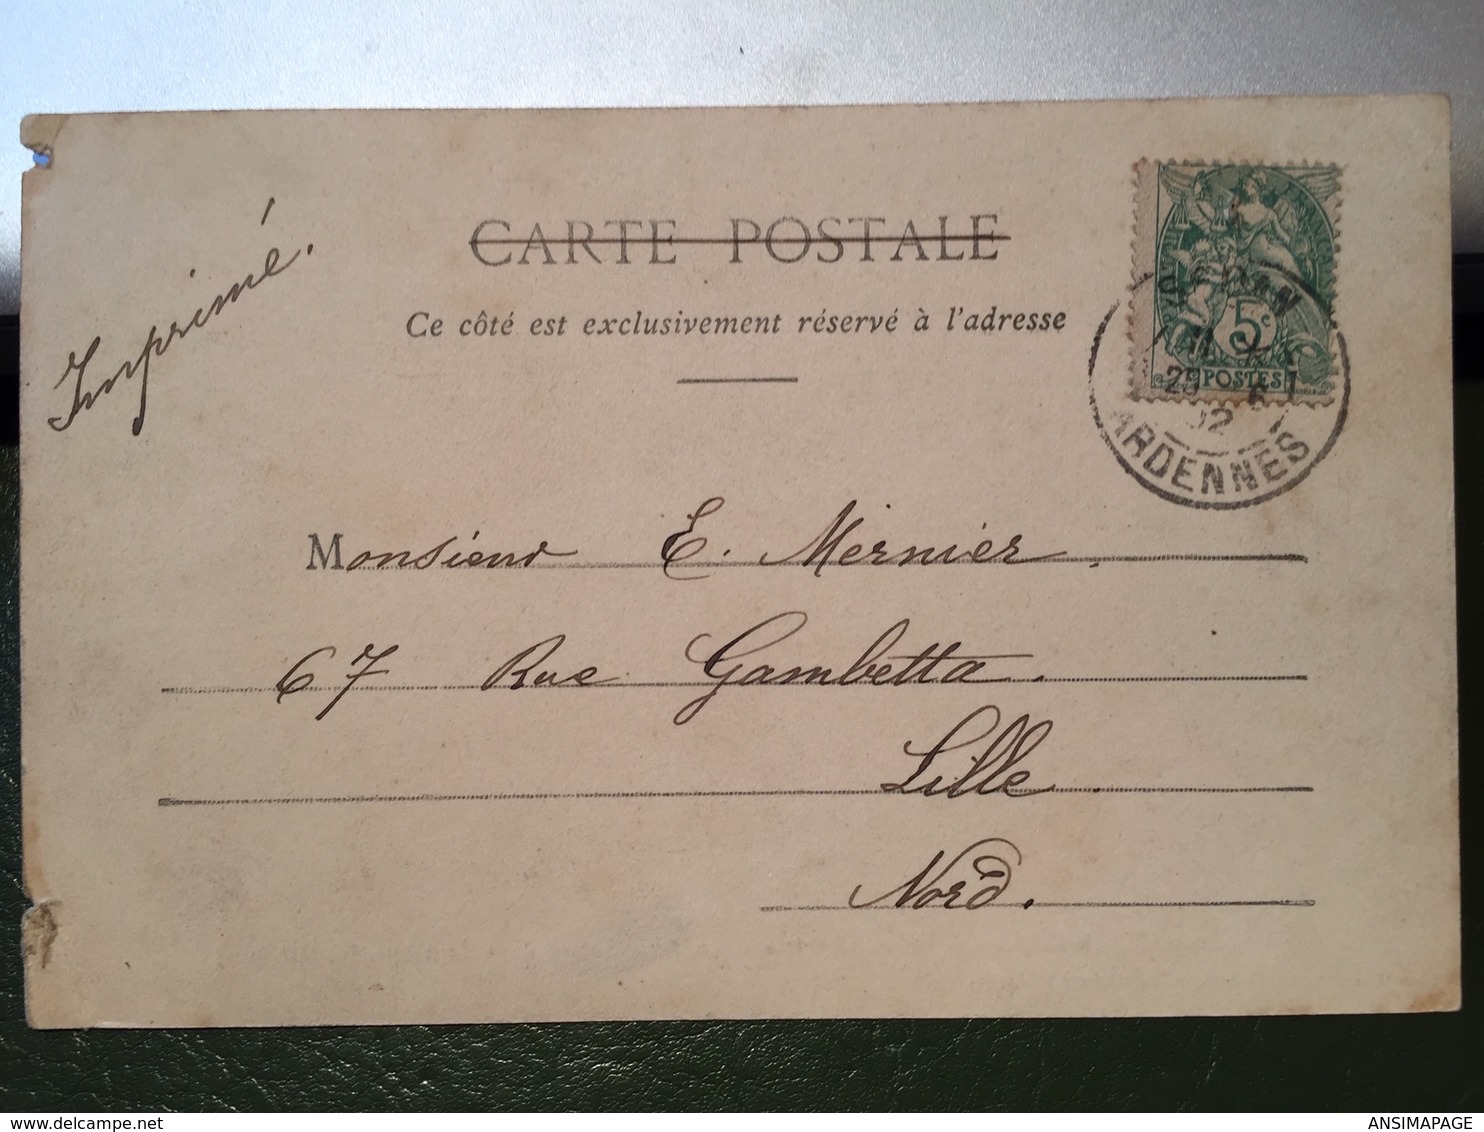 Imprimé.
CARTE POSTALE
Ce côté est exclusivement réservé à l'adresse
5c
POSTES
25
02
ARDENNES
Monsieur E. Mernier.
67 Rue Gambetta.
Lille.
Nord.
delcampe.net
ANSIMAPAGE